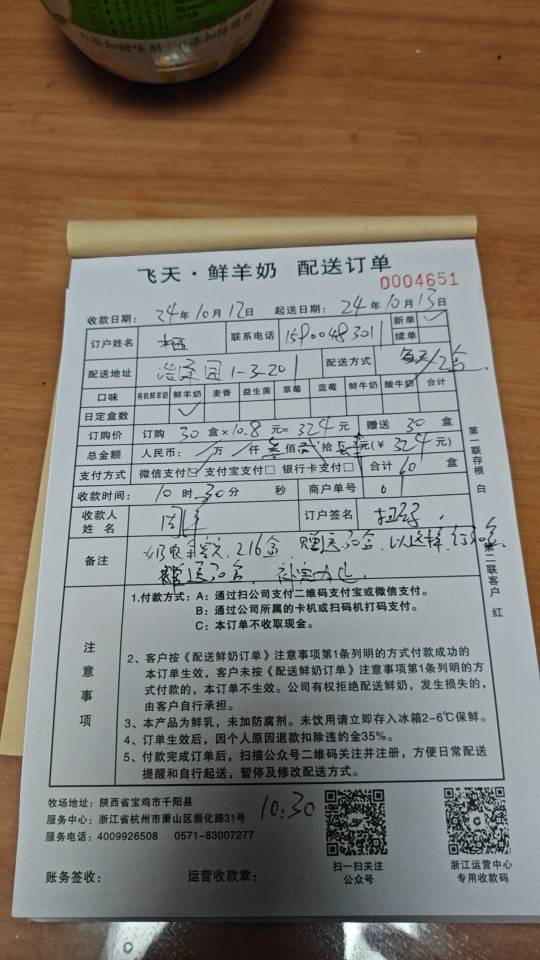 飞天·鲜羊奶 配送订单
0004651
收款日期: 24年10月12日 起送日期: 24年10月13日
订户姓名 联系电话 15900483011 新单 ✓ 续单
配送地址 1-3-201 配送方式
口味 有机鲜羊奶 鲜羊奶 麦香 益生菌 草莓 蓝莓 鲜牛奶 酸牛奶 合计
日定盒数 ✓
订购价 订购 30 盒×10.8元=324元 赠送 30 盒
总金额 人民币: 万 仟 叁佰 拾 元(¥324元)
支付方式 微信支付☑ 支付宝支付□ 银行卡支付□ 合计 60 盒
收款时间: 10时30分 秒 商户单号 01
收款人姓名 订户签名
备注 216盒 赠送30盒
送30盒
第一联存根 白
第二联客户 红
注意事项
1.付款方式: A:通过扫公司支付二维码支付宝或微信支付。
B:通过公司所属的卡机或扫码机打码支付。
C:本订单不收取现金。
2、客户按《配送鲜奶订单》注意事项第1条列明的方式付款成功的
本订单生效,客户未按《配送鲜奶订单》注意事项第1条列明的方
式付款的,本订单不生效。公司有权拒绝配送鲜奶,发生损失的,
由客户自行承担。
3、本产品为鲜乳,未加防腐剂。未饮用请立即存入冰箱2-6℃保鲜。
4、订单生效后,因个人原因退款扣除违约金35%。
5、付款完成订单后,扫描公众号二维码关注并注册,方便日常配送
提醒和自行起送,暂停及修改配送方式。
牧场地址: 陕西省宝鸡市千阳县
10:30
服务中心: 浙江省杭州市萧山区崇化路31号
服务电话: 4009926508 0571-83007277
扫一扫关注
公众号
浙江运营中心
专用收款码
账务签收: 运营收款章: